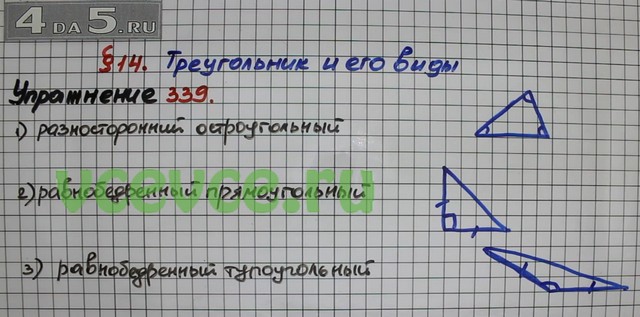 4 DA 5.RU
§14. Треугольник и его виды
Упражнение 339.
1) разносторонний остроугольный
2) равнобедренный прямоугольный
vcevce.ru
3) равнобедренный тупоугольный